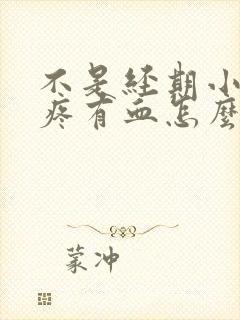 不是经期小
疼有血怎麼
蒙冲